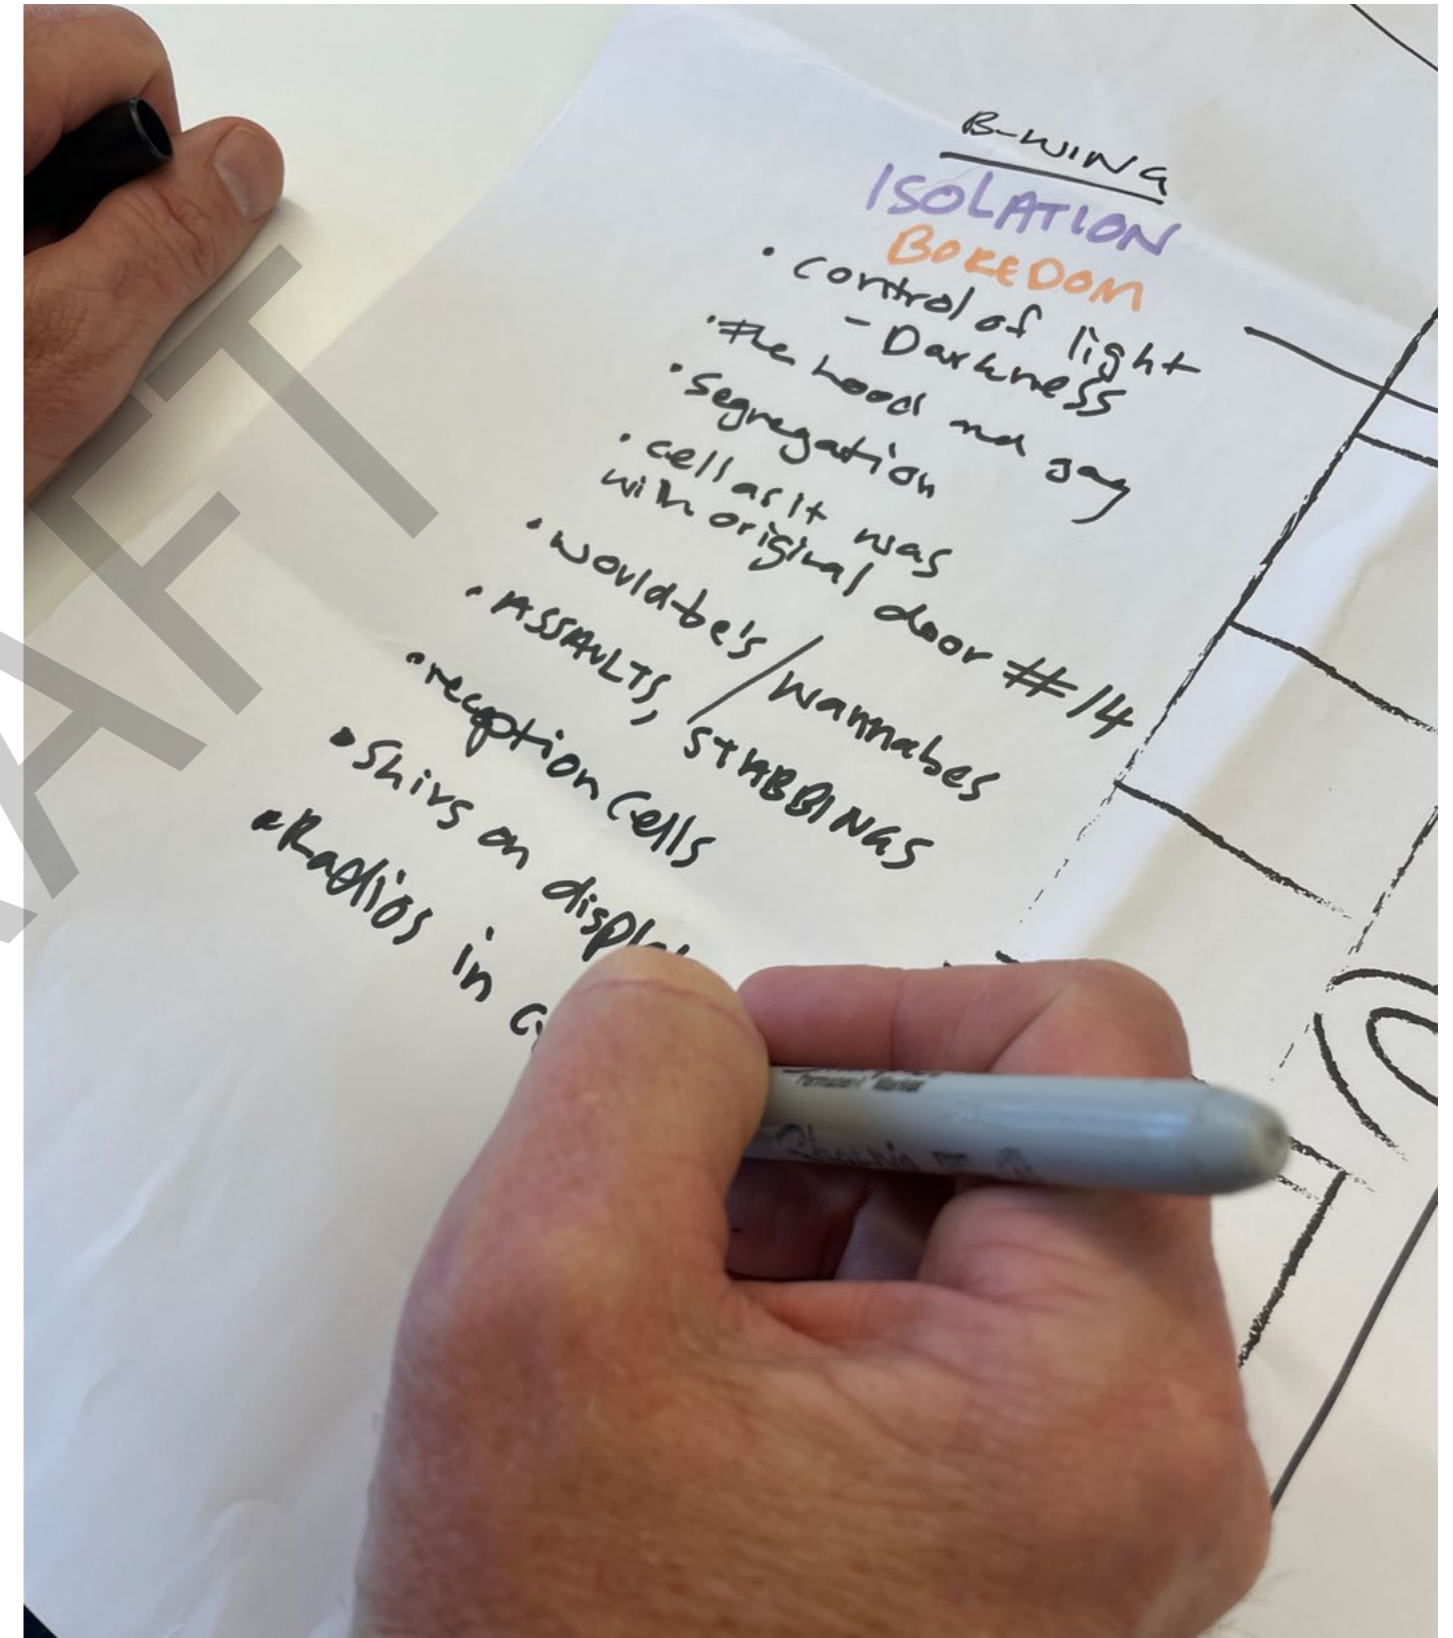 B-WING
ISOLATION
BOREDOM
• control of light
- Darkness
• the hood and gag
• segregation
• cell as it was
with original door #14
• would-be's / wannabes
• ASSAULTS, STABBINGS
• reception cells
• Shivs on display
• Radios in
Permanent Marker